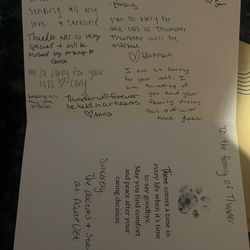 Sending all my
love ♡ Caroline
- Emily
Thunder was so very
special & will be
missed by many ♡
Grace
I'm so sorry for
your loss so Thunder
Thunder will be
missed
♡ Hannah
I'm so sorry for your
loss ♡
I am so sorry
for your loss, I am
thinking of
you and your
family during
this difficult
time
Thunder will forever
be held in our hearts
♡ Anna
To the family of Thunder
There comes a time in
every life when it's time
to say goodbye.
May you find comfort
and peace after your
caring decision.
Sincerely,
The doctors &
at
Vet